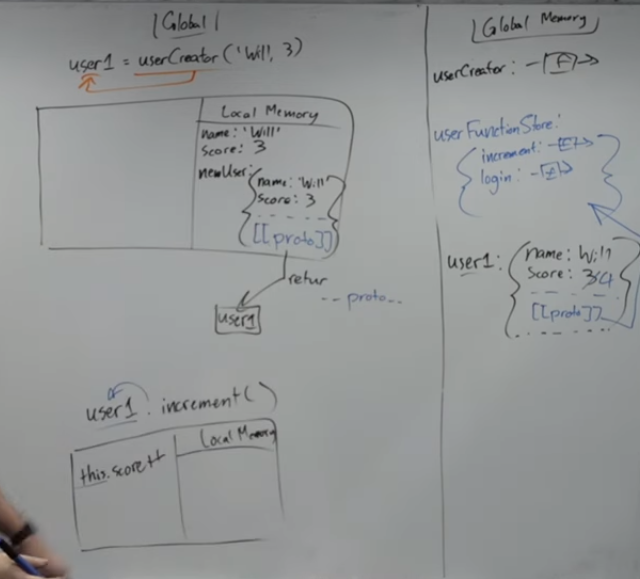 |Global|
user1 = userCreator('Will', 3)
Local Memory
name: 'Will'
score: 3
newUser:
name: 'Will'
score: 3
[[proto]]
retur
-- proto --
user1
user1.increment()
Local Memory
this.score++
|Global Memory
userCreator: -[F]->
userFunctionStore:
increment: -[F]->
login: -[F]->
user1:
name: Will
score: 34
[[proto]]